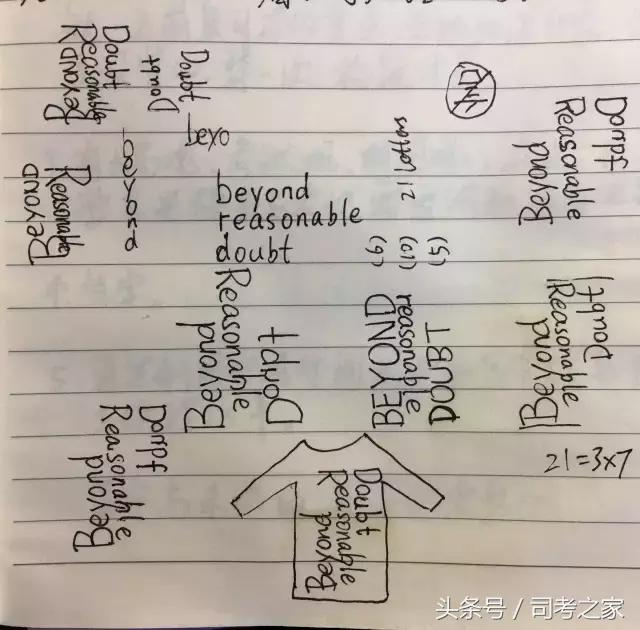 Doubt
Reasonable
BeyonD
Doubt
Doubt
beyo
Reasonable
BeyonD
beyond
reasonable
doubt
21 letters
(5)
(10)
(6)
Dorrpf
Reasonable
Beyond
Doubt
Reasonable
Beyond
DOUBT
reasonable
BEYOND
Doubt
Reasonable
Beyond
Dorrpf
Reasonable
Beyond
Doubt
Reasonable
Beyond
21=3×7
头条号 / 司考之家